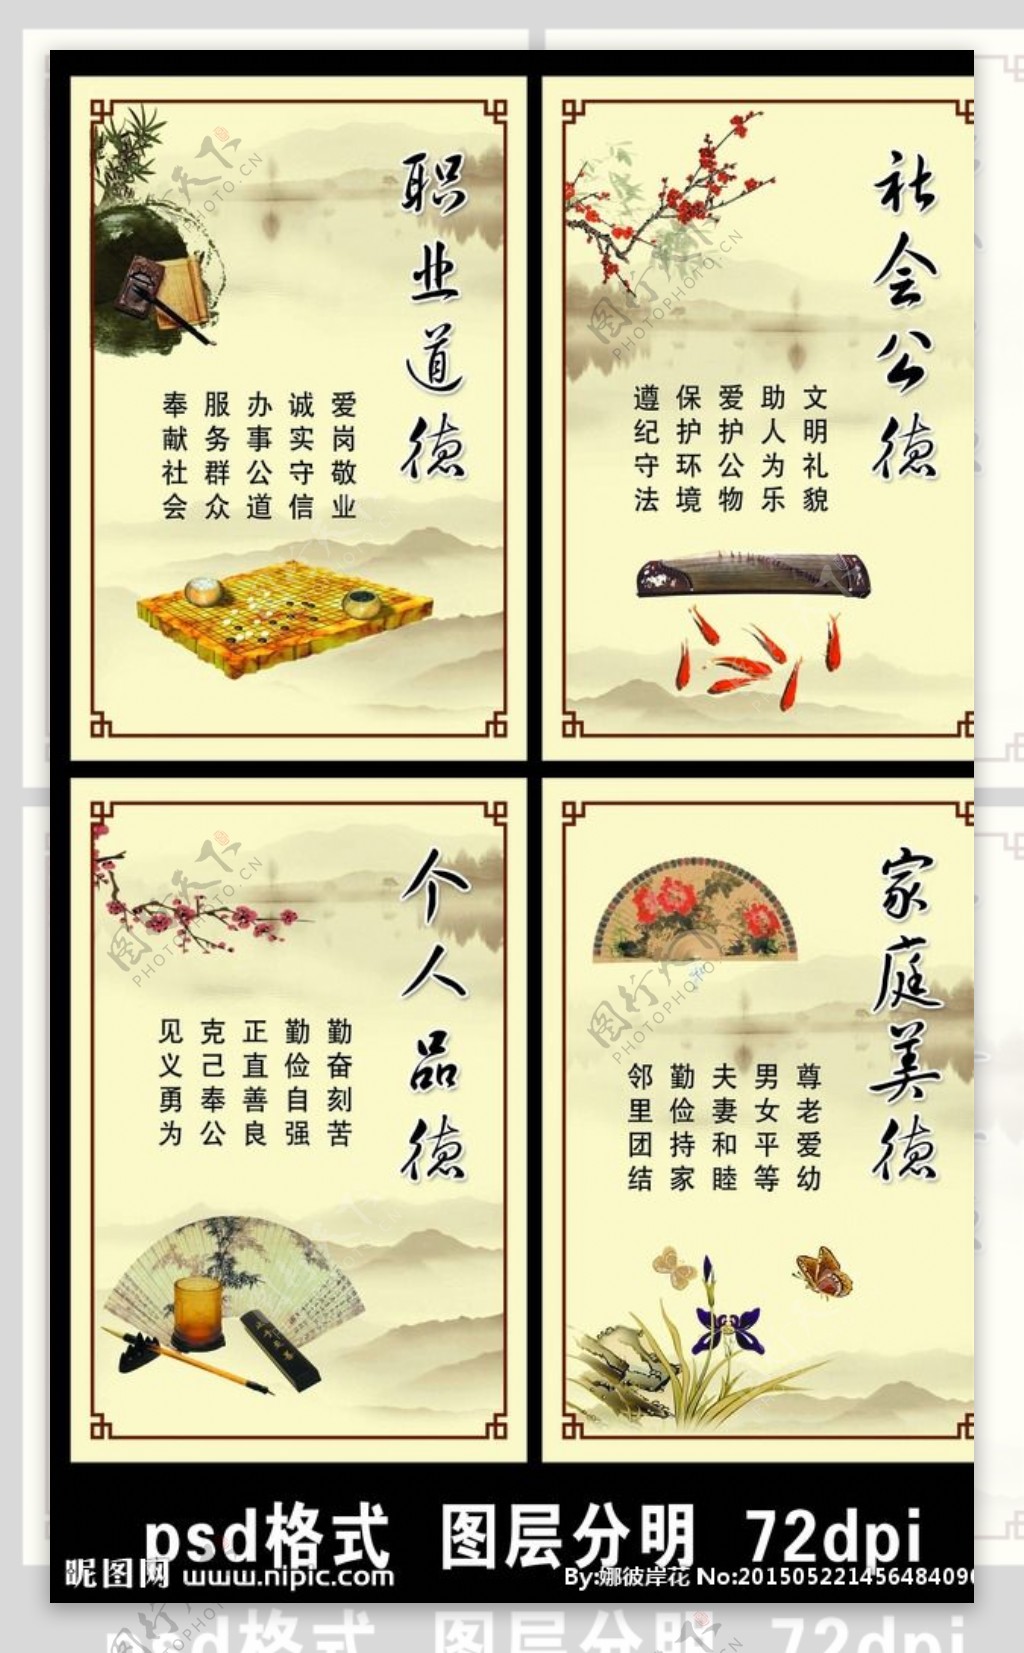 职业道德
爱岗敬业
诚实守信
办事公道
服务群众
奉献社会
社会公德
文明礼貌
助人为乐
爱护公物
保护环境
遵纪守法
个人品德
勤奋刻苦
勤俭自强
正直善良
克己奉公
见义勇为
家庭美德
尊老爱幼
男女平等
夫妻和睦
勤俭持家
邻里团结
psd格式 图层分明 72dpi
昵图网 www.nipic.com
By:娜彼岸花 No:2015052214564840